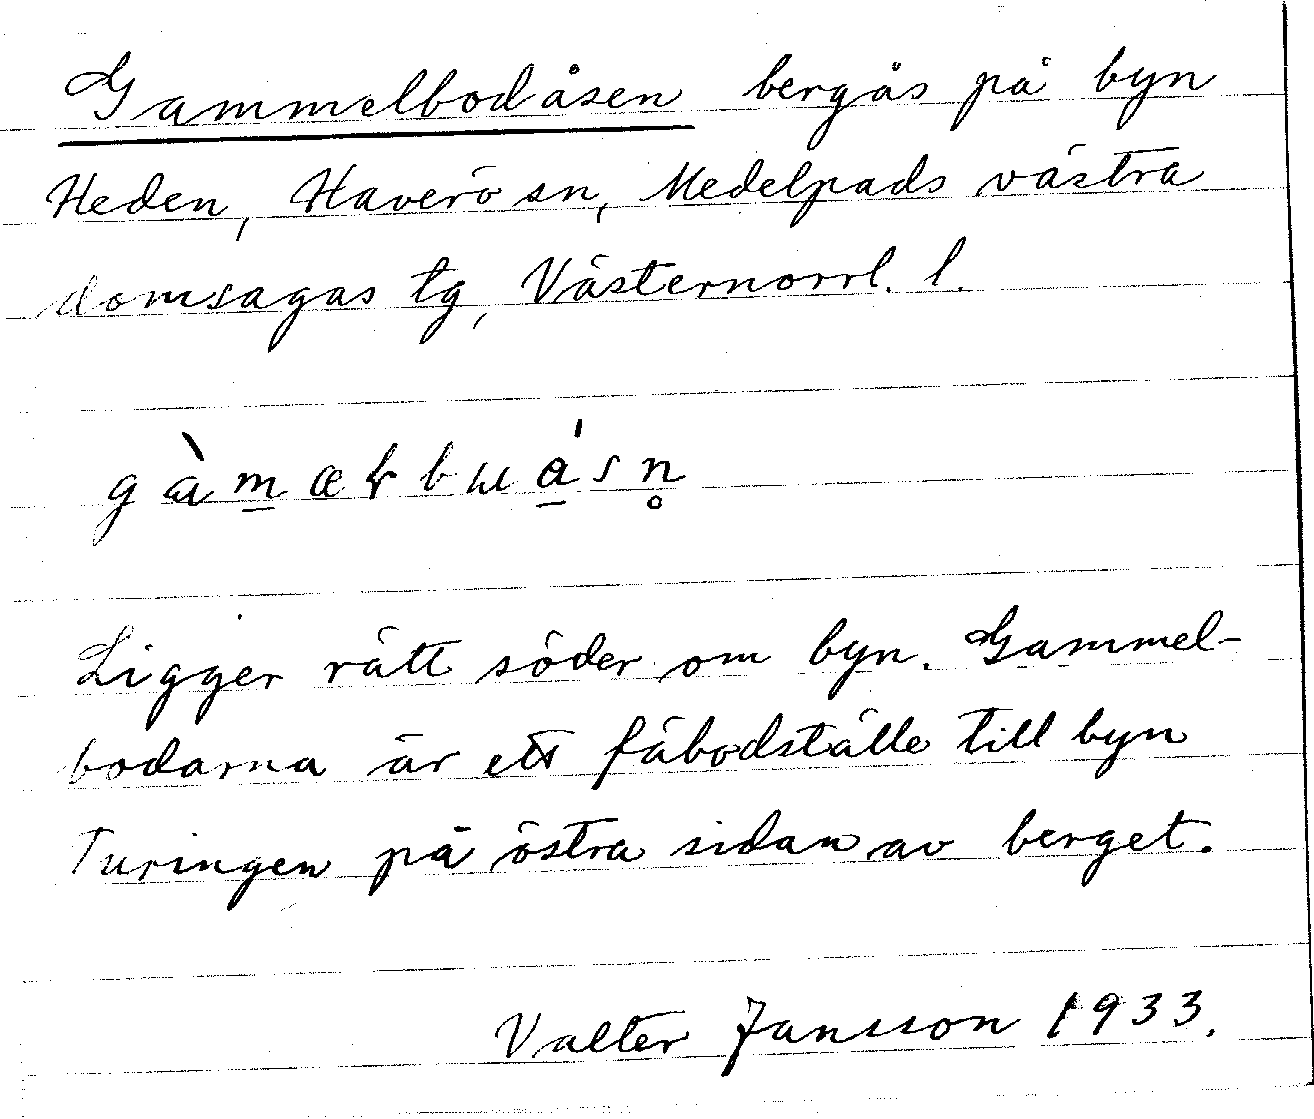 Gammelbodåsen bergås på byn
Heden, Haverö sn, Medelpads västra
domsagas tg, Västernorrl. l.
Ligger rätt söder om byn. Gammel-
bodarna är ett fäbodställe till byn
Turingen på östra sidan av berget.
Valter Jansson 1933.